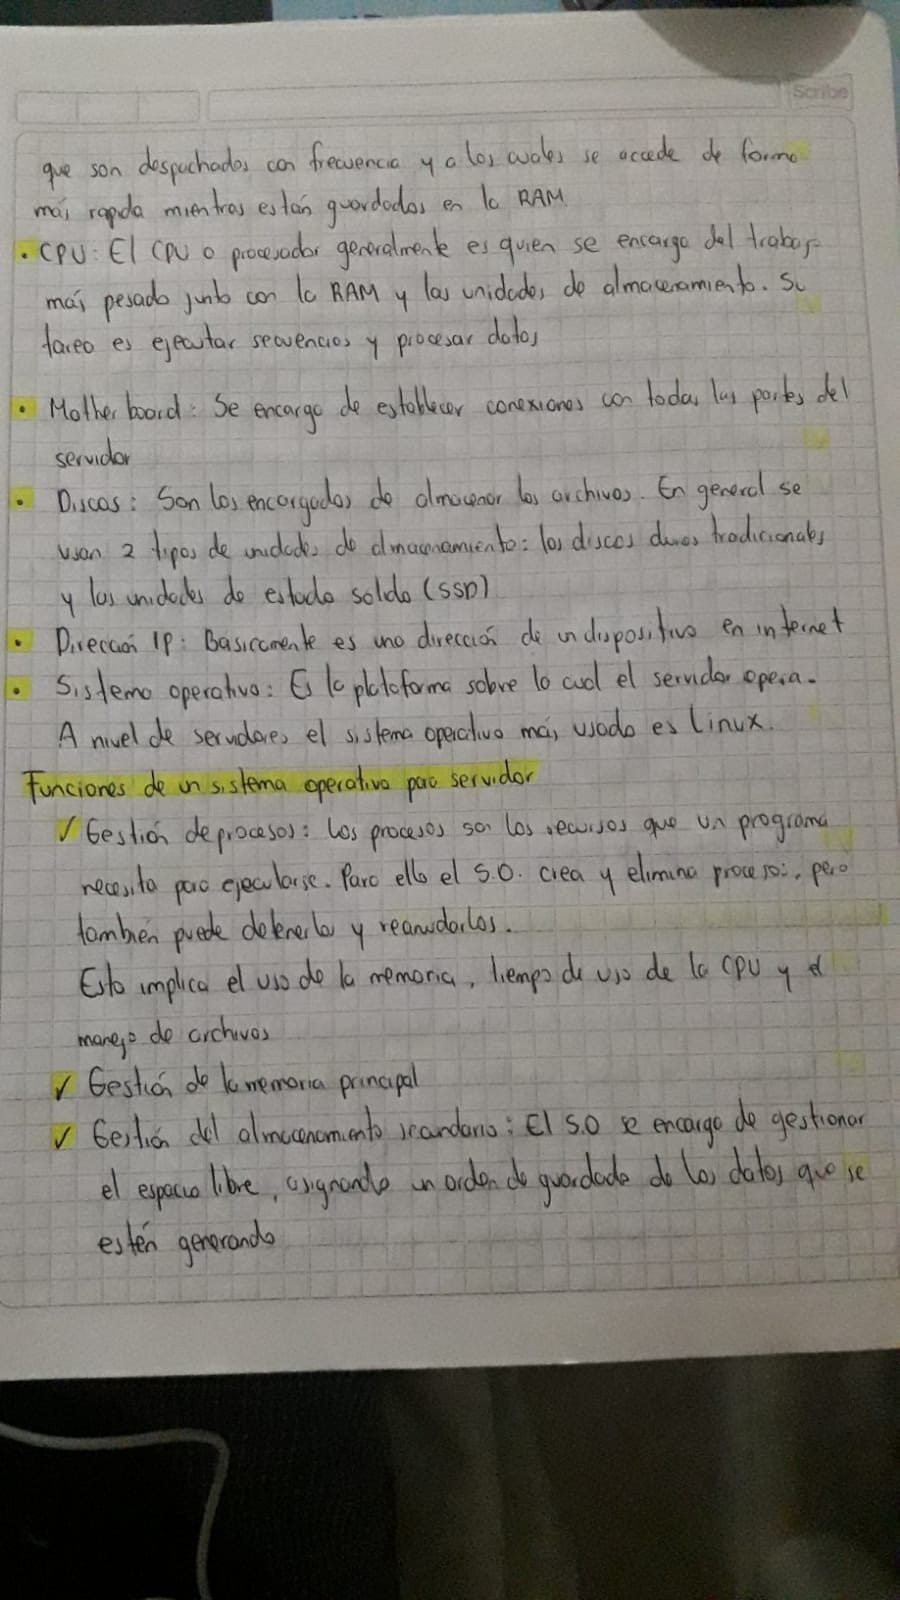 Scribe
que son despachados con frecuencia y a los cuales se accede de forma
más rapida mientras están guardados en la RAM.
• CPU: El CPU o procesador generalmente es quien se encarga del trabajo
más pesado junto con la RAM y las unidades de almacenamiento. Su
tarea es ejecutar secuencias y procesar datos
• Mother board: Se encarga de establecer conexiones con todas las partes del
servidor
• Discos: Son los encargados de almacenar los archivos. En general se
usan 2 tipos de unidades de almacenamiento: los discos duros tradicionales
y las unidades de estado solido (SSD)
• Dirección IP: Basicamente es una dirección de un dispositivo en internet
• Sistema operativo: Es la plataforma sobre la cual el servidor opera.
A nivel de servidores el sistema operativo más usado es Linux.
Funciones de un sistema operativo para servidor
✓ Gestión de procesos: Los procesos son los recursos que un programa
necesita para ejecutarse. Para ello el S.O. crea y elimina procesos, pero
también puede detenerlos y reanudarlos.
Esto implica el uso de la memoria, tiempo de uso de la CPU y el
manejo de archivos
✓ Gestión de la memoria principal
✓ Gestión del almacenamiento secundario: El S.O se encarga de gestionar
el espacio libre, asignando un orden de guardado de los datos que se
estén generando